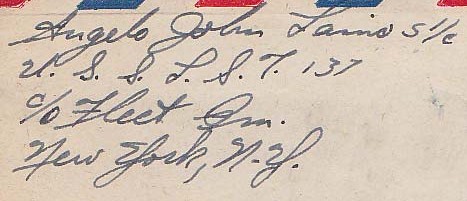 Angelo John Laino S 1/c
U. S. S. L. S. T. 137
c/o Fleet Pm.
New York, N.Y.